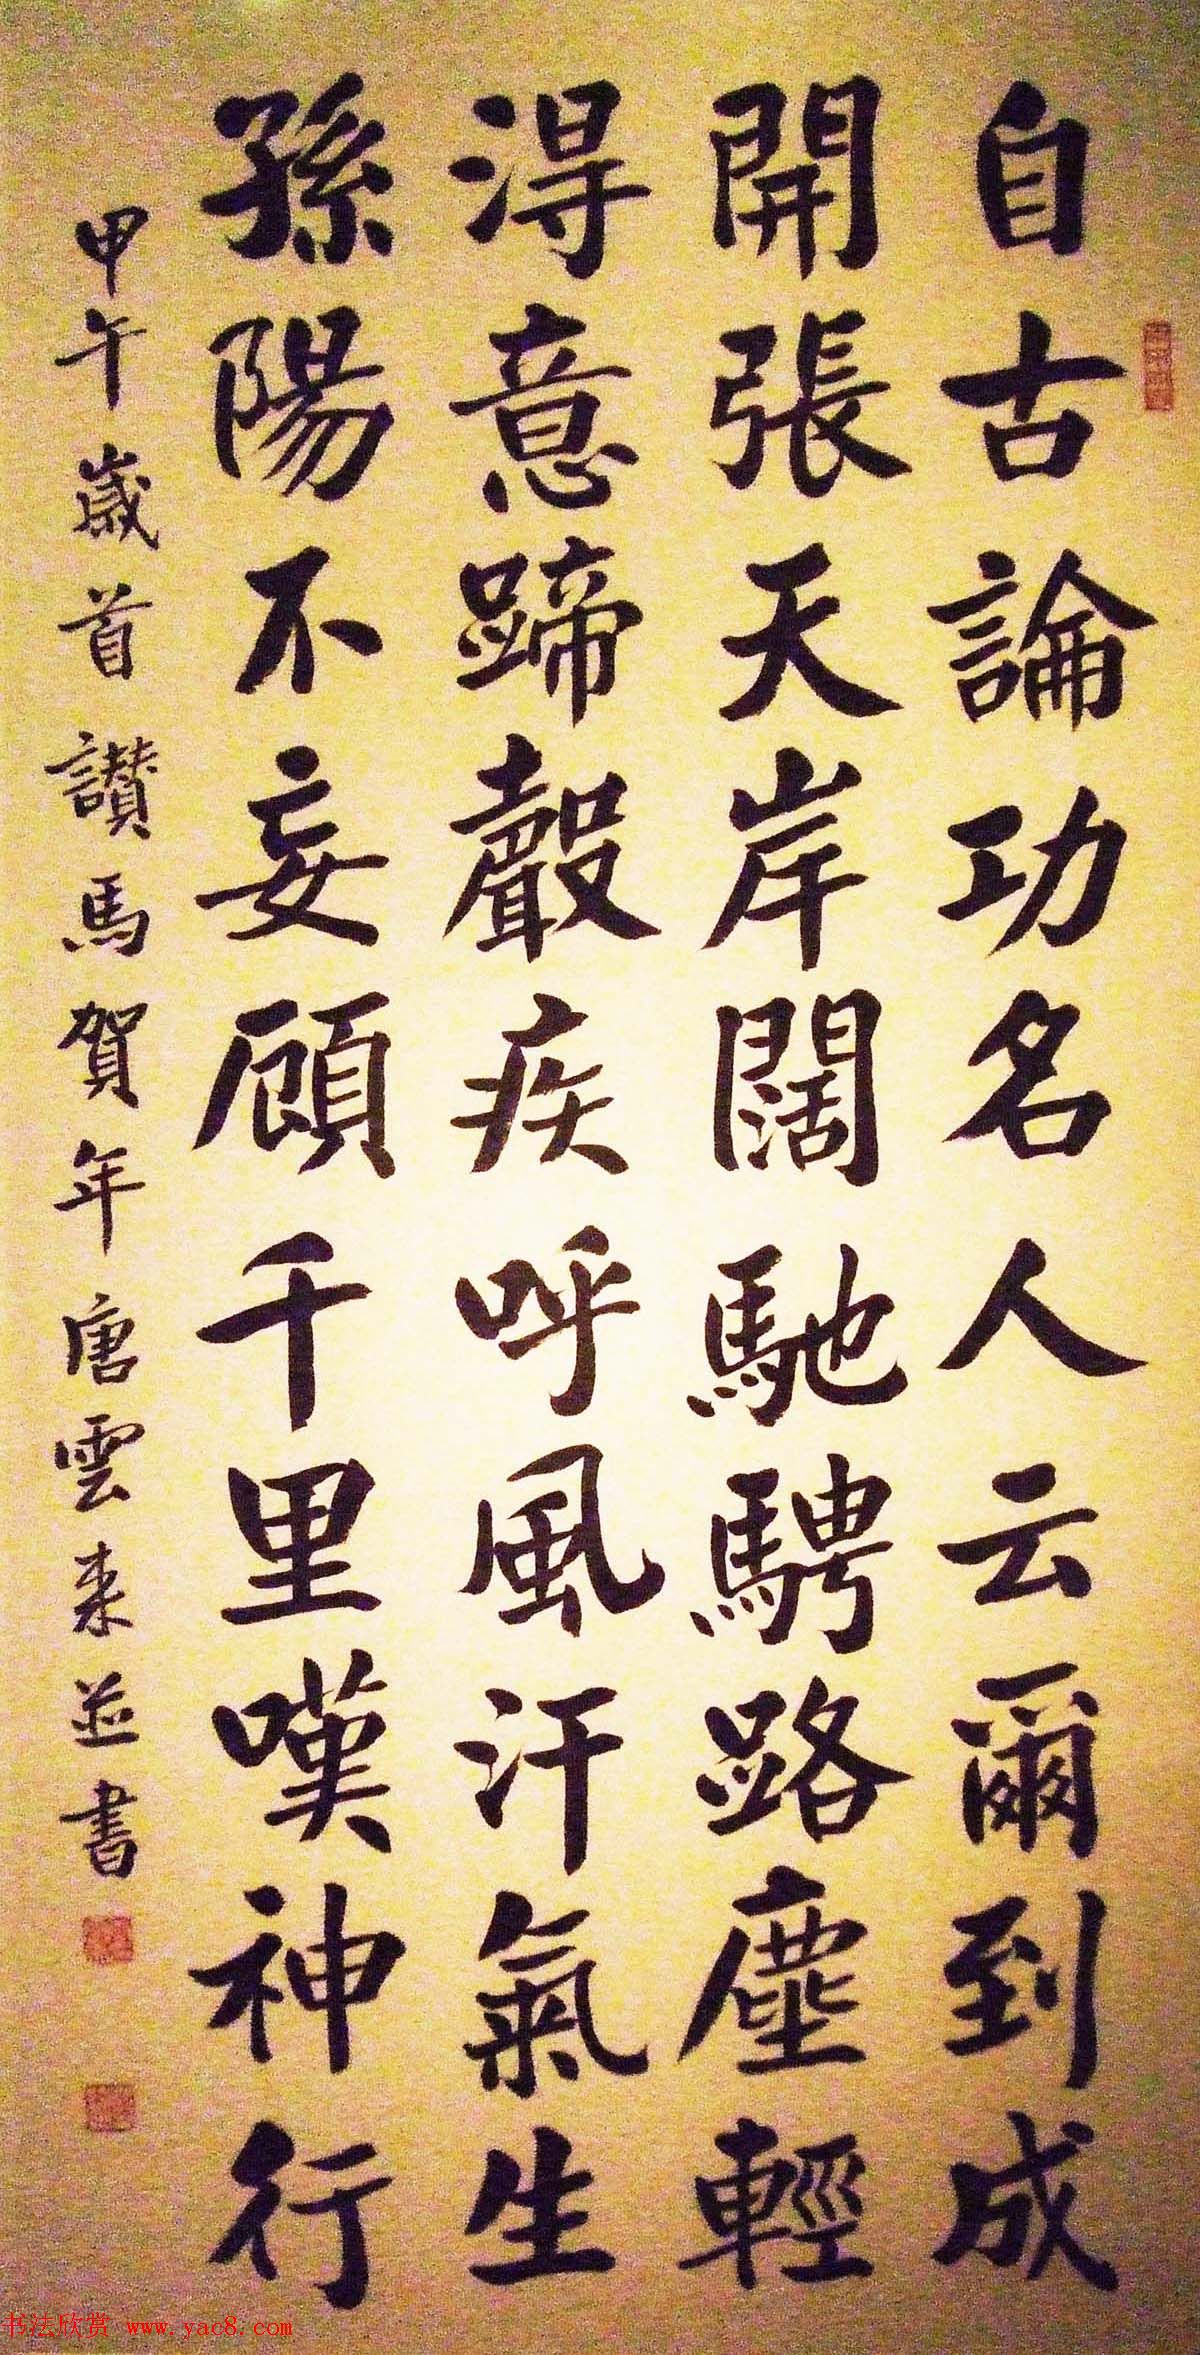 自古論功名人云爾到成
開張天岸闊馳騁路塵輕
淂意蹄聲疾呼風汗氣生
孫陽不妄顧千里嘆神行
甲午歲首讃馬賀年唐雲来並書
书法欣赏 www.yac8.com